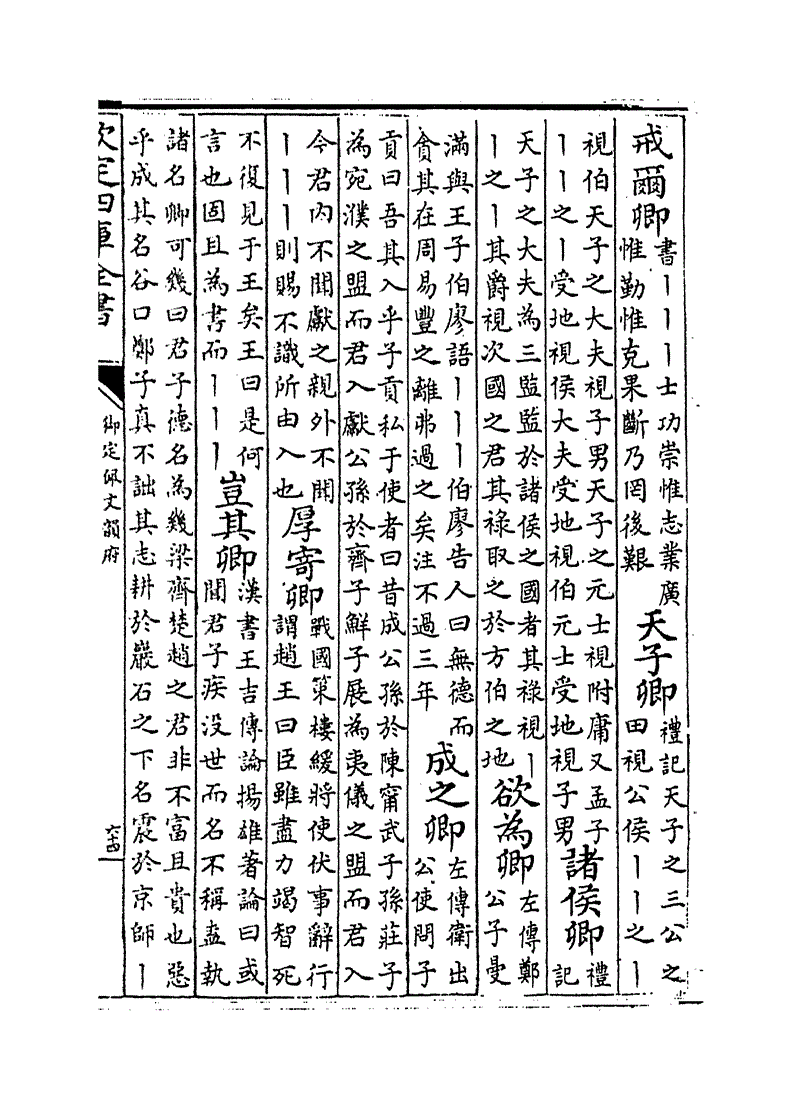 戒爾卿 書｜｜｜士功崇惟志業廣惟勤惟克果斷乃罔後艱 天子卿 禮記天子之三公之田視公侯｜｜之｜
視伯天子之大夫視子男天子之元士視附庸又孟子
｜｜之｜受地視侯大夫受地視伯元士受地視子男 諸侯卿 禮記
天子之大夫為三監監於諸侯之國者其祿視｜
｜之｜其爵視次國之君其祿取之於方伯之地 欲為卿 左傳鄭公子曼
滿與王子伯廖語｜｜｜伯廖告人曰無德而
貪其在周易豐之離弗過之矣注不過三年 成之卿 左傳衛出公使問子
貢曰吾其入乎子貢私于使者曰昔成公孫於陳甯武子孫莊子
為宛濮之盟而君入獻公孫於齊子鮮子展為夷儀之盟而君入
今君內不聞獻之親外不聞
｜｜｜則賜不識所由入也 厚寄卿 戰國策樓緩將使伏事辭行謂趙王曰臣雖盡力竭智死
不復見于王矣王曰是何
言也固且為書而｜｜｜ 豈其卿 漢書王吉傳論揚雄著論曰或聞君子疾没世而名不稱盍執
諸名卿可幾曰君子德名為幾梁齊楚趙之君非不富且貴也惡
乎成其名谷口鄭子真不詘其志耕於巖石之下名震於京師｜
欽定四庫全書
御定佩文韻府
六十四